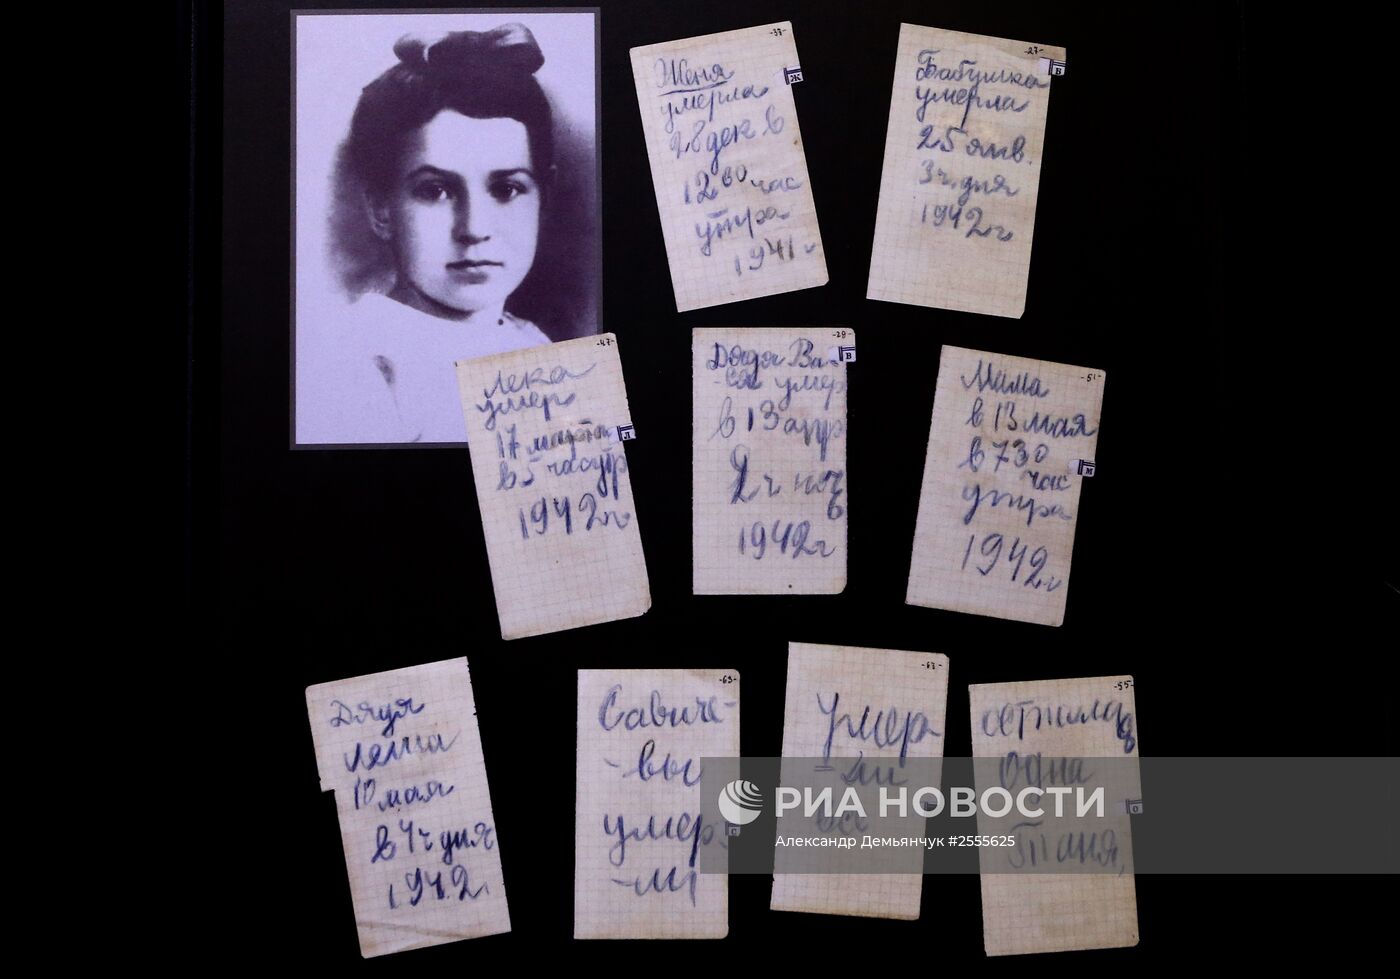 -37-
Ж
Женя
умерла
28 дек в
12 00 час
утра
1941 г
-27-
Б
Бабушка
умерла
25 янв.
3 ч. дня
1942 г
-47-
Л
Лека
умер
17 марта
в 5 час утр
1942 г
-29-
В
Дядя Ва-
-ся умер
в 13 апр
2 ч ноч
ь
1942 г
-51-
М
Мама
в 13 мая
в 7 30
час
утра
1942 г
Дядя
Леша
10 мая
в 4 ч дня
1942 г
-63-
Савиче-
-вы
С
умер
-ли
Умер
-ли
все
-55-
осталась
одна
О
Таня
РИА НОВОСТИ
Александр Демьянчук #2555625